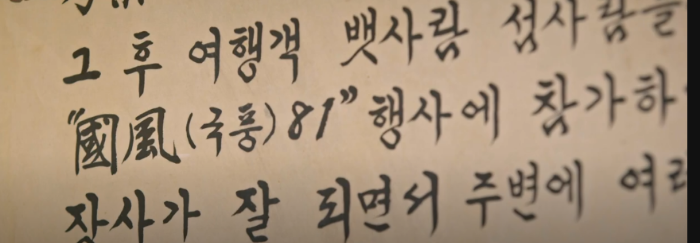 그 후 여행객 뱃사람 섬사람들
"國風(국풍)81" 행사에 참가하
장사가 잘 되면서 주변에 여러